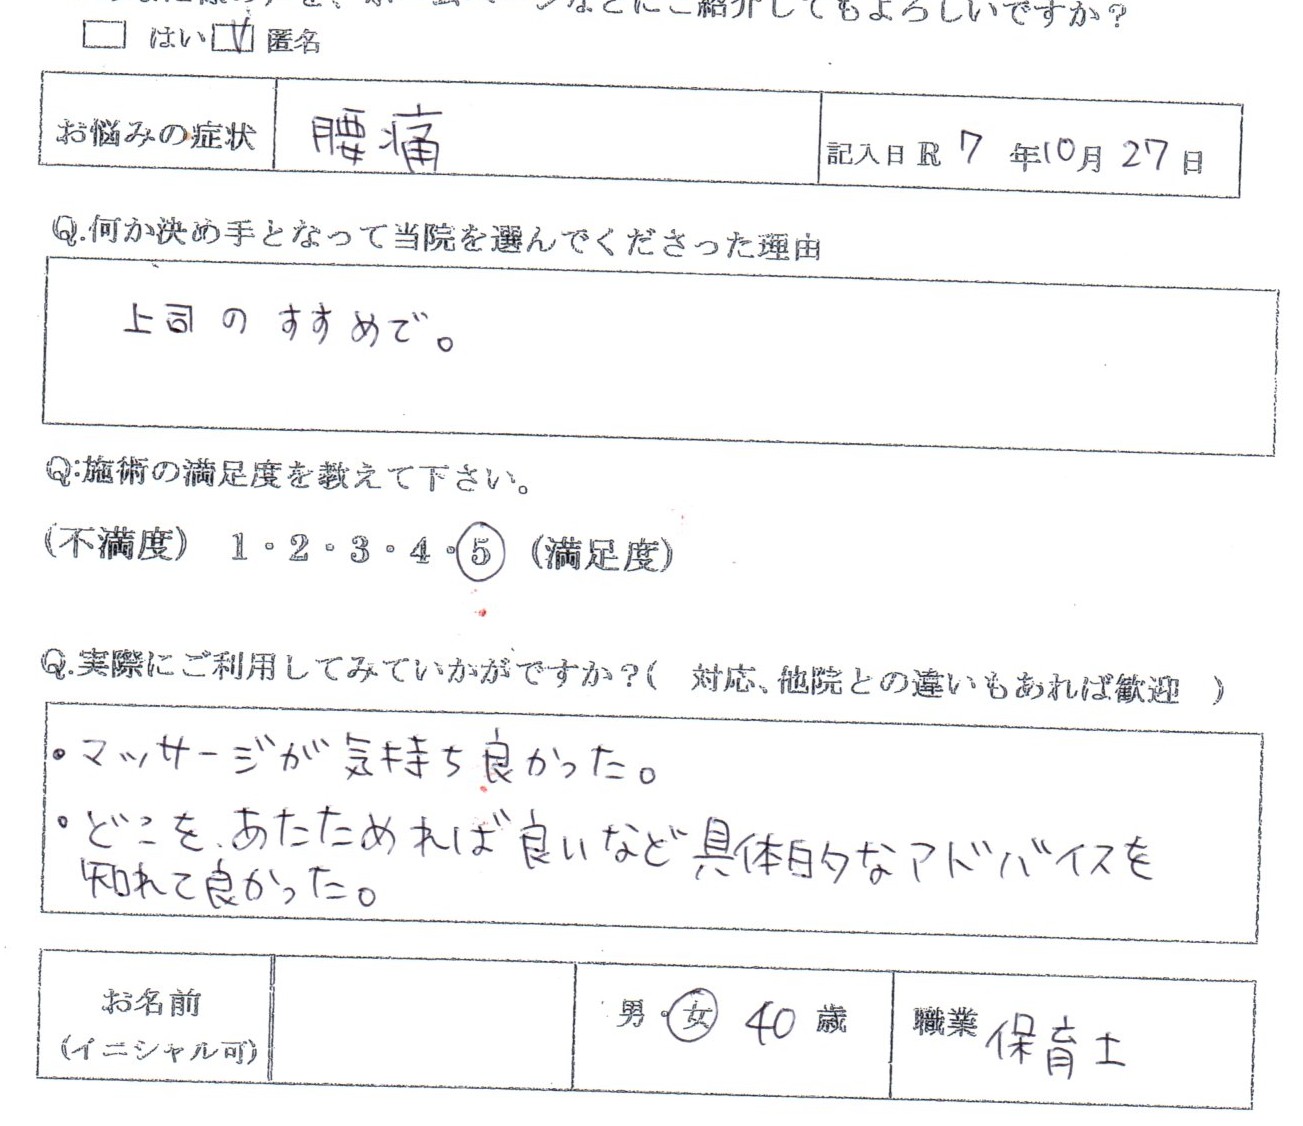 などにご紹介してもよろしいですか？
はい 匿名
お悩みの症状 腰痛 記入日 R 7 年 10 月 27 日
Q.何か決め手となって当院を選んでくださった理由
上司のすすめで。
Q:施術の満足度を教えて下さい。
(不満度) 1・2・3・4・5 (満足度)
Q.実際にご利用してみていかがですか？( 対応、他院との違いもあれば歓迎 )
・マッサージが気持ち良かった。
・どこを、あたためれば良いなど具体的なアドバイスを
知れて良かった。
お名前 男・女 40 歳 職業 保育士
(イニシャル可)